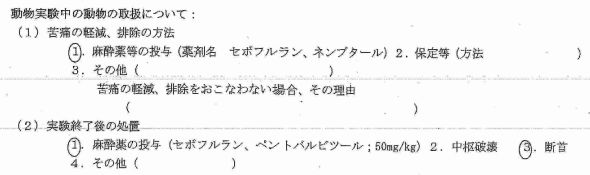 動物実験中の動物の取扱について：
（１）苦痛の軽減、排除の方法
①．麻酔薬等の投与（薬剤名　セボフルラン、ネンブタール）２．保定等（方法　　　　　　　　）
３．その他（　　　　　　　　　　　　　　　）
苦痛の軽減、排除をおこなわない場合、その理由
（　　　　　　　　　　　　　　　　　　　　　　）
（２）実験終了後の処置
①．麻酔薬の投与（セボフルラン、ペントバルビツール；50mg/kg）２．中枢破壊　③．断首
４．その他（　　　　　　　　）